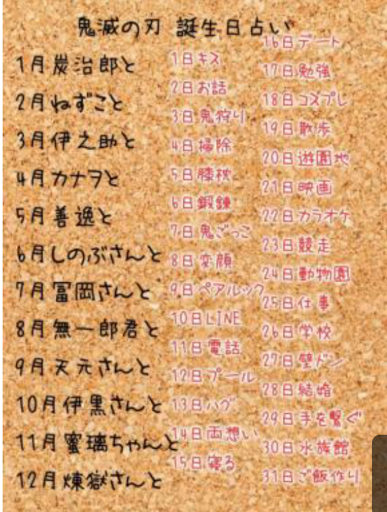 鬼滅の刃 誕生日占い
1月炭治郎と
2月ねずこと
3月伊之助と
4月カナヲと
5月善逸と
6月しのぶさんと
7月冨岡さんと
8月無一郎君と
9月天元さんと
10月伊黒さんと
11月蜜璃ちゃんと
12月煉獄さんと
1日キス
2日お話
3日鬼狩り
4日掃除
5日膝枕
6日鍛錬
7日鬼ごっこ
8日変顔
9日ペアルック
10日LINE
11日電話
12日プール
13日ハグ
14日両想い
15日寝る
16日デート
17日勉強
18日コスプレ
19日散歩
20日遊園地
21日映画
22日カラオケ
23日競走
24日動物園
25日仕事
26日学校
27日壁ドン
28日結婚
29日手を繋ぐ
30日水族館
31日ご飯作り